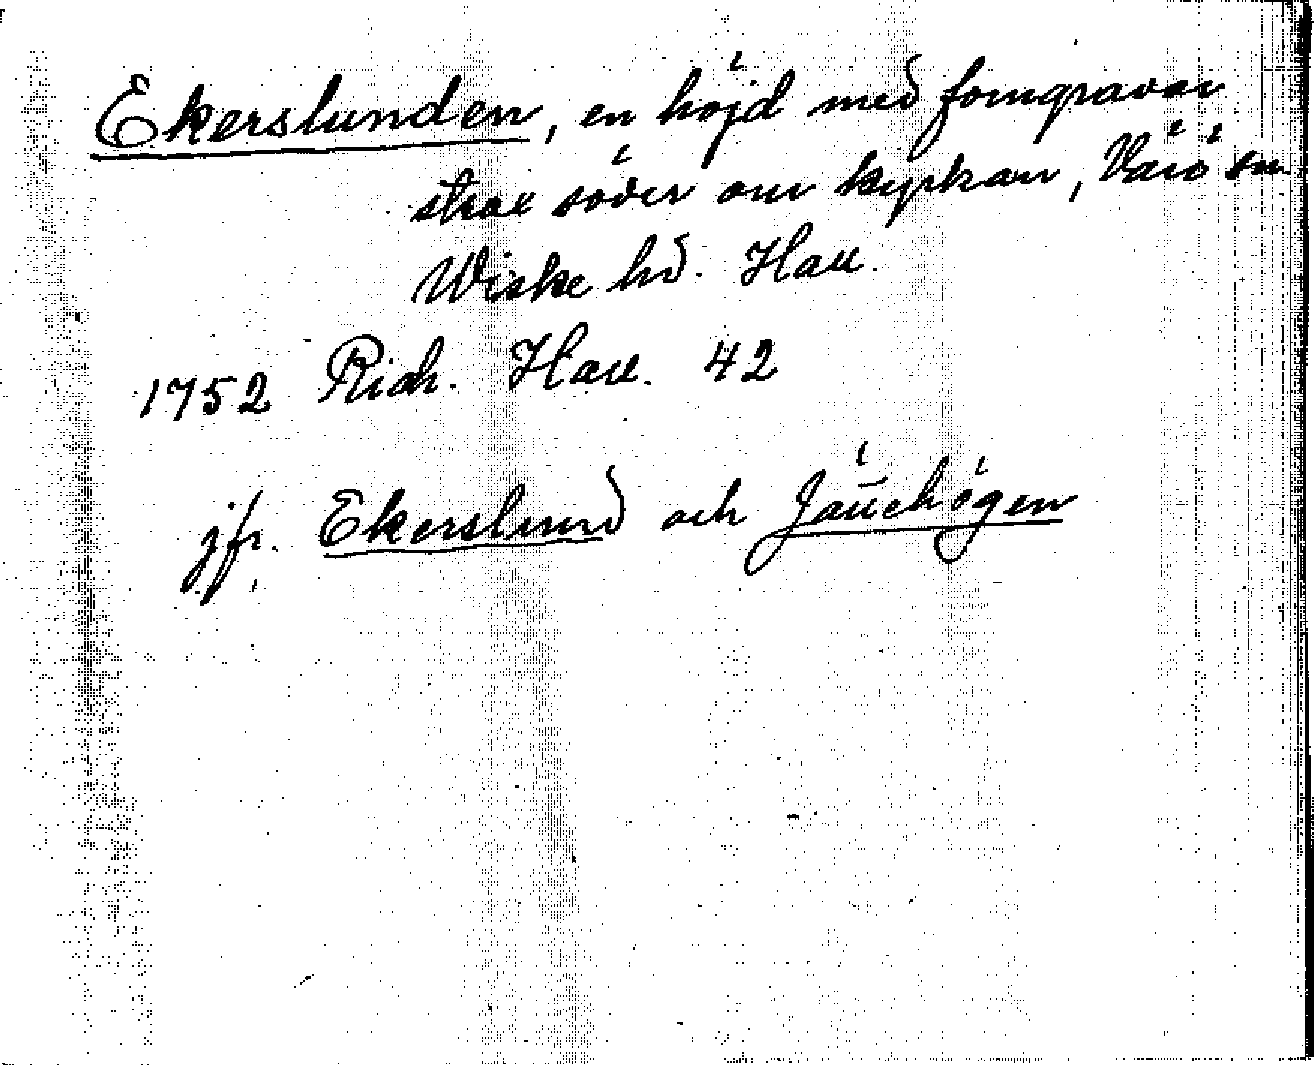 Ekerslunden, en höjd med forngravar
strax söder om kyrkan, Värö sn.
Wiske hd. Hall.
1752 Rich. Hall. 42
jfr. Ekerslund och